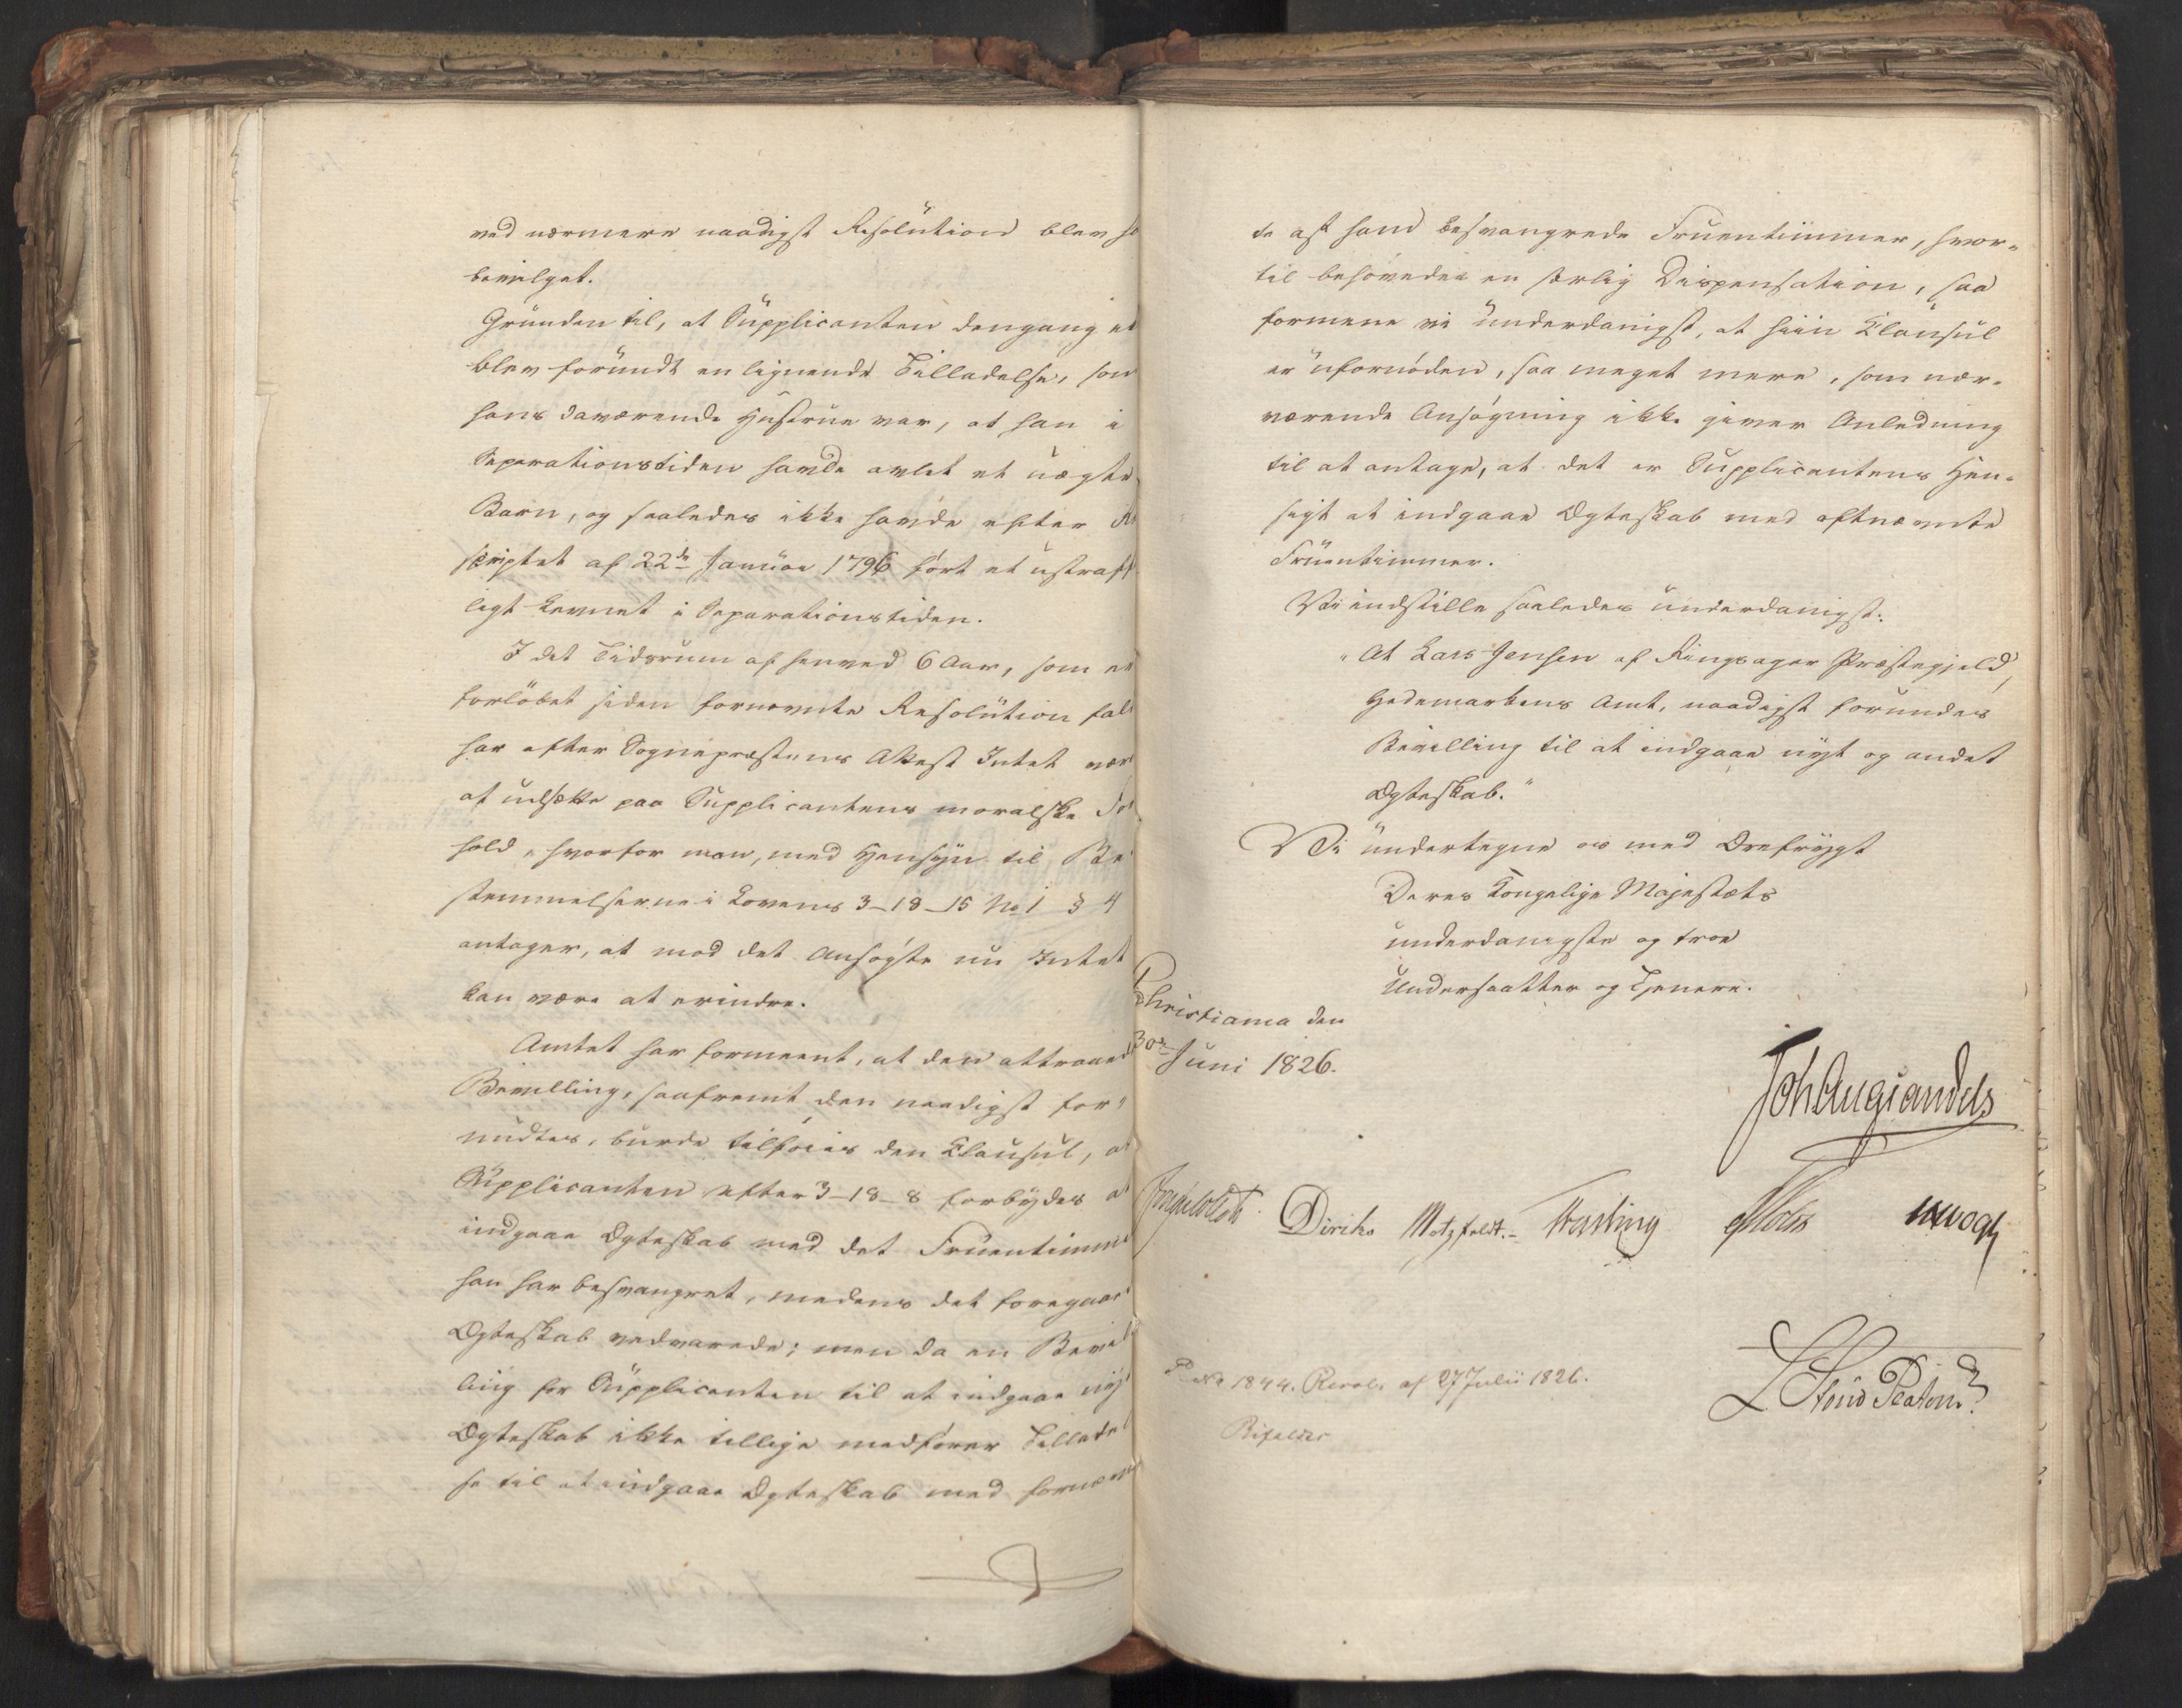 ved nærmere naadigst Resolution blev
bevilget.
Grunden til, at Supplicanten dengang ei
blev forundt en lignende Tilladelse, som
hans daværende Hustrue var, at han i
Separationstiden havde avlet et uægte
Barn, og saaledes ikke havde efter Re
scriptet af 22de Januar 1796 ført et ustraff
ligt Levnet i Separationstiden.
I det Tidsrum af henved 6 Aar, som er
forløbet siden fornævnte Resolution fal
har efter Sognepræstens Attest Intet vær
at udsætte paa Supplicantens moralske For
hold, hvorfor man, med Hensyn til Be
stemmelserne i Lovens 3-18-15 No 1 § 4
antager, at mod det Ansøgte nu Intet
kan være at erindre.
Amtet har formeent, at den attraaed
Bevilling, saafremt den naadigst for=
undtes, burde tilføies den Clausul, at
Supplicanten efter 3-18-8 forbydes at
indgaae Ægteskab med det Fruentimme
han har besvangret, medens det foregaae
Ægteskab vedvarede; men da en Bevil
ling for Supplicanten til at indgaae nyt
Ægteskab ikke tillige medfører Tilladel
se til at indgaae Ægteskab med fornævn
te af ham besvangrede Fruentimmer, hvor=
til behøvedes en særlig Dispensation, saa
formene vi underdanigst, at hiin Clausul
er ufornøden, saa meget mere, som nær=
værende Ansøgning ikke giver Anledning
til at antage, at det er Supplicantens Hen=
sigt at indgaae Ægteskab med oftnævnte
Fruentimmer.
Vi indstille saaledes underdanigst:
"At Lars Jensen af Ringsager Præstegjeld,
Hedemarkens Amt, naadigst forundes
Bevilling til at indgaae nyt og andet
Ægteskab."
Vi undertegne os med Ærefrygt
Deres Kongelige Majestæts
underdanigste og troe
Undersaatter og Tjenere.
Christiania den
30te Juni 1826.
Joh Aug Sandels
Diriks Motzfeldt. Treschow
L Stoud Platou
No 1844. Resol. af 27 Julii 1826.
Bifaldes